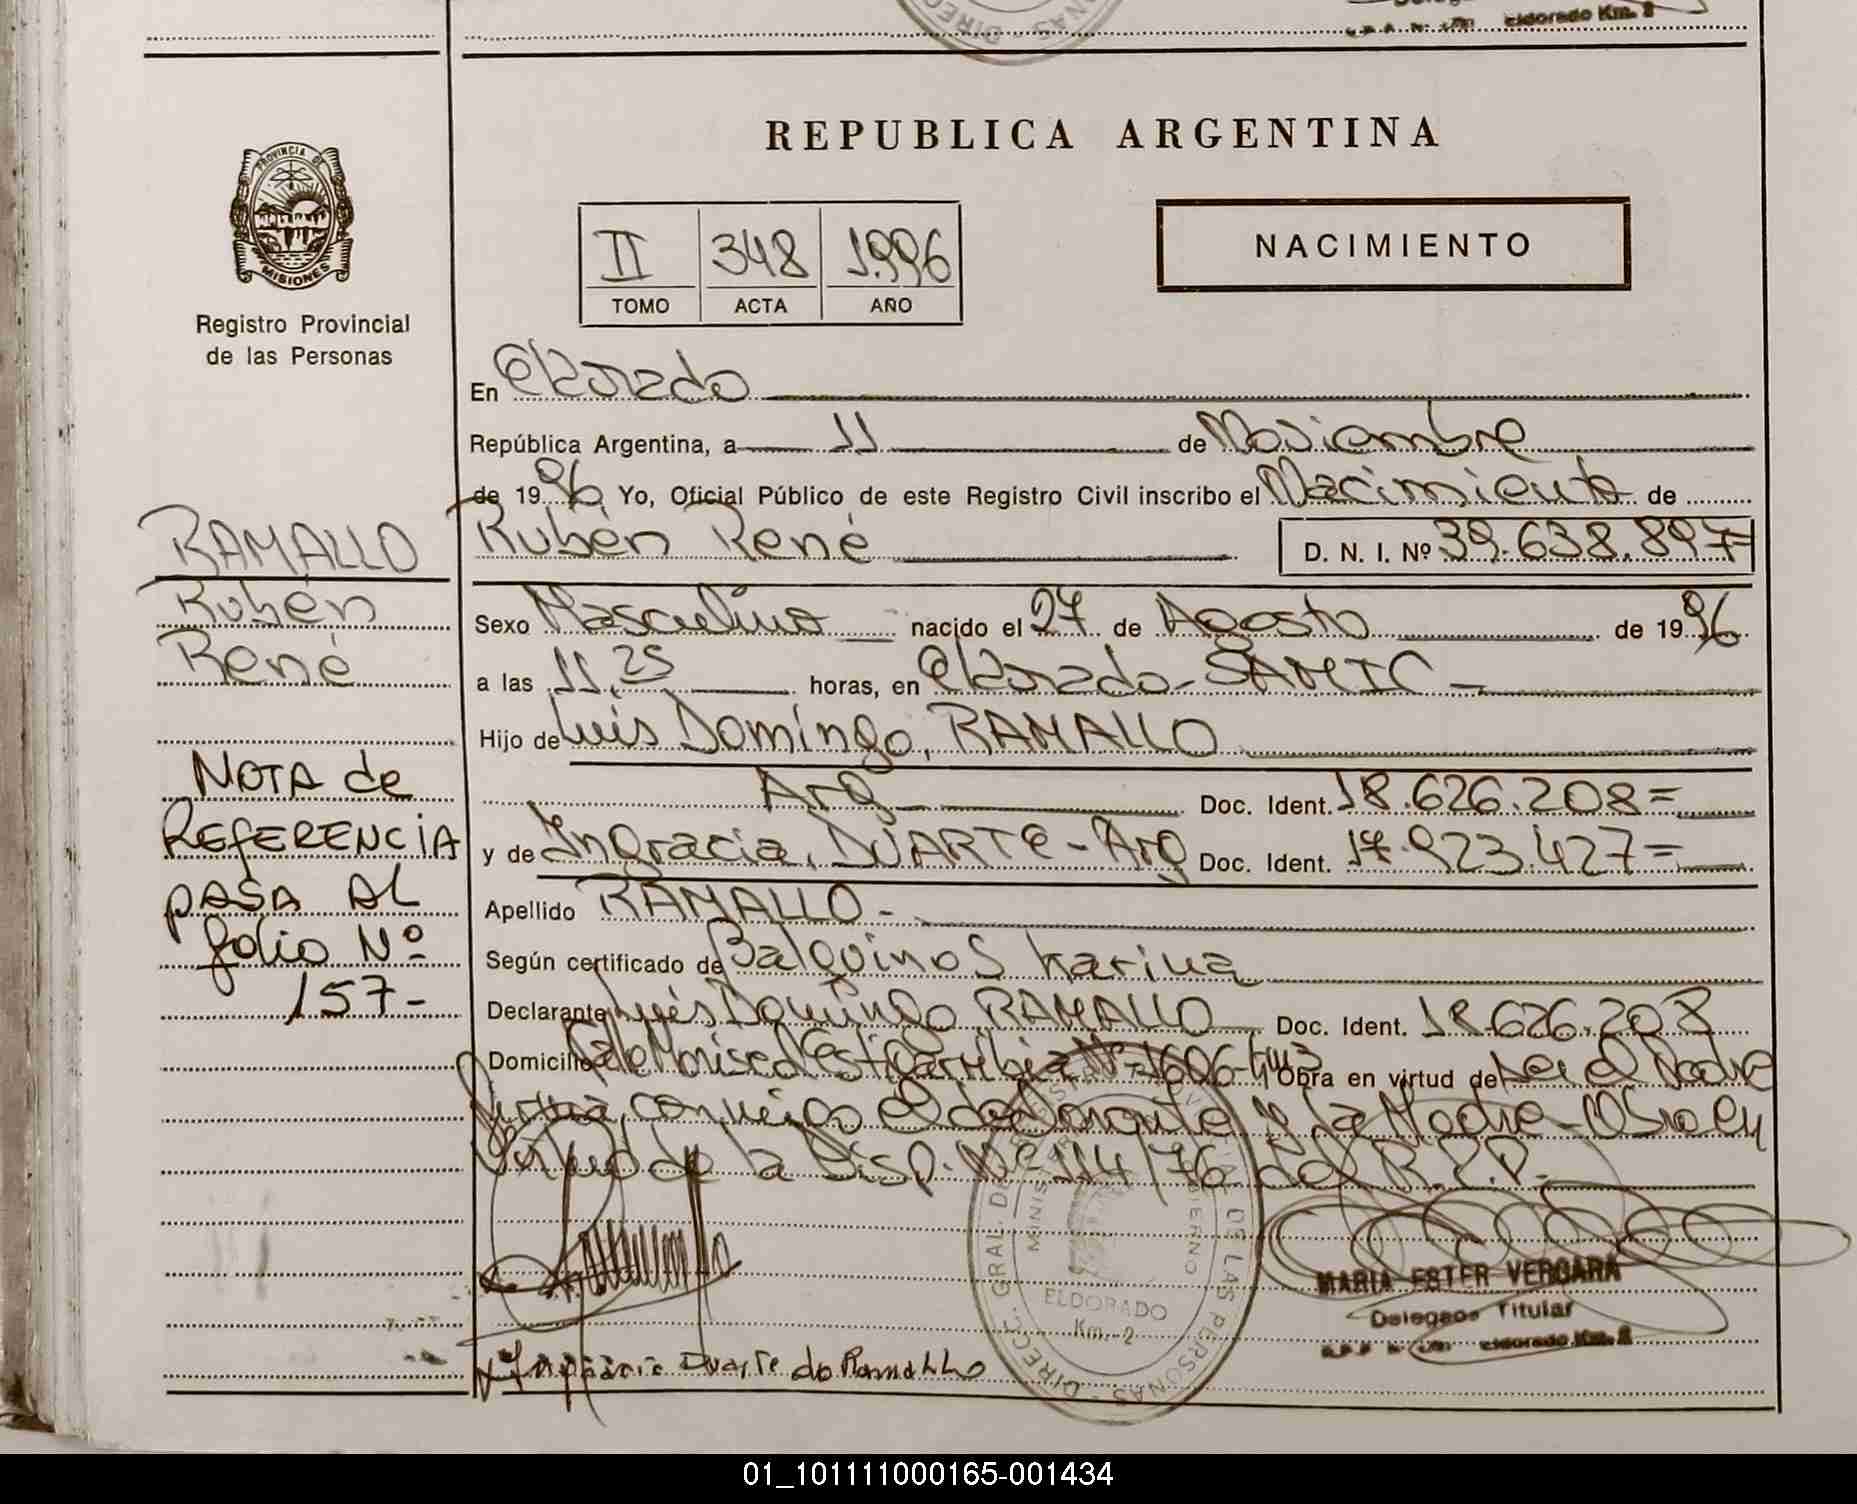 Eldorado Km. 2
REPUBLICA ARGENTINA
PROVINCIA DE
MISIONES
Registro Provincial
de las Personas
II 348 1.996
TOMO ACTA AÑO
NACIMIENTO
En Eldorado
República Argentina, a 11 de Noviembre
de 1996 Yo, Oficial Público de este Registro Civil inscribo el Nacimiento de
RAMALLO
Rubén René D. N. I. Nº 39.638.897=
Rubén
René
Sexo Masculino nacido el 27 de Agosto de 1996
a las 11.25 horas, en Eldorado - SAMIC -
Hijo de Luis Domingo, RAMALLO
Arg Doc. Ident. 18.626.208=
y de Ingracia, DUARTE - Arg Doc. Ident. 17.923.427=
Apellido RAMALLO -
Según certificado de Balquinos Karina
Declarante Luis Domingo RAMALLO Doc. Ident. 18.626.208
Domicilio Calle Nº 1606 - Obra en virtud de ser el Padre
firma conmigo el declarante y la Madre - Obra en
virtud de la Disp. Nº 114/76 del R.P.P.
NOTA de
REFERENCIA
PASA AL
folio Nº
157-
DIRECC. GRAL. DE LAS PERSONAS
ELDORADO
Km. 2
MARIA ESTER VERGARA
Delegada Titular
Eldorado Km. 2
Ingracia Duarte de Ramallo
01_101111000165-001434